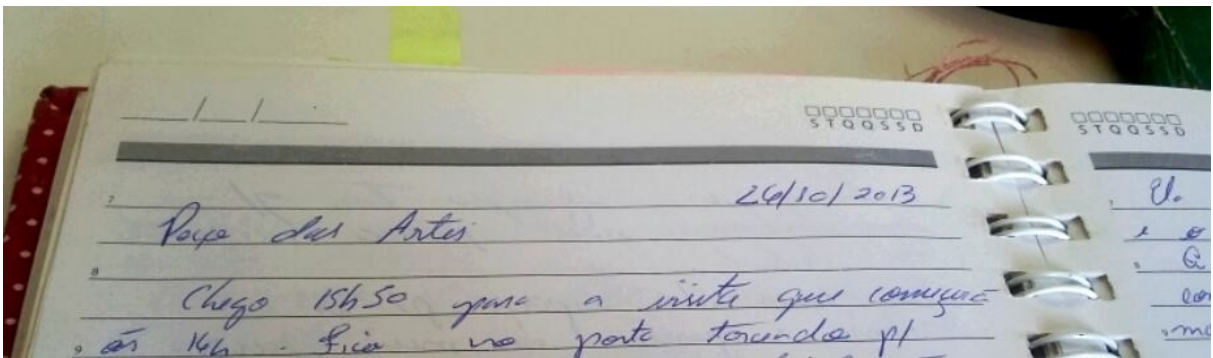 __/__/__
S T Q Q S S D
S T Q Q S S D
7 26/10/2013
Paço das Artes
8
Chego 15h50 para a visita que começará
9 às 16h. Fico na porta torcendo p/